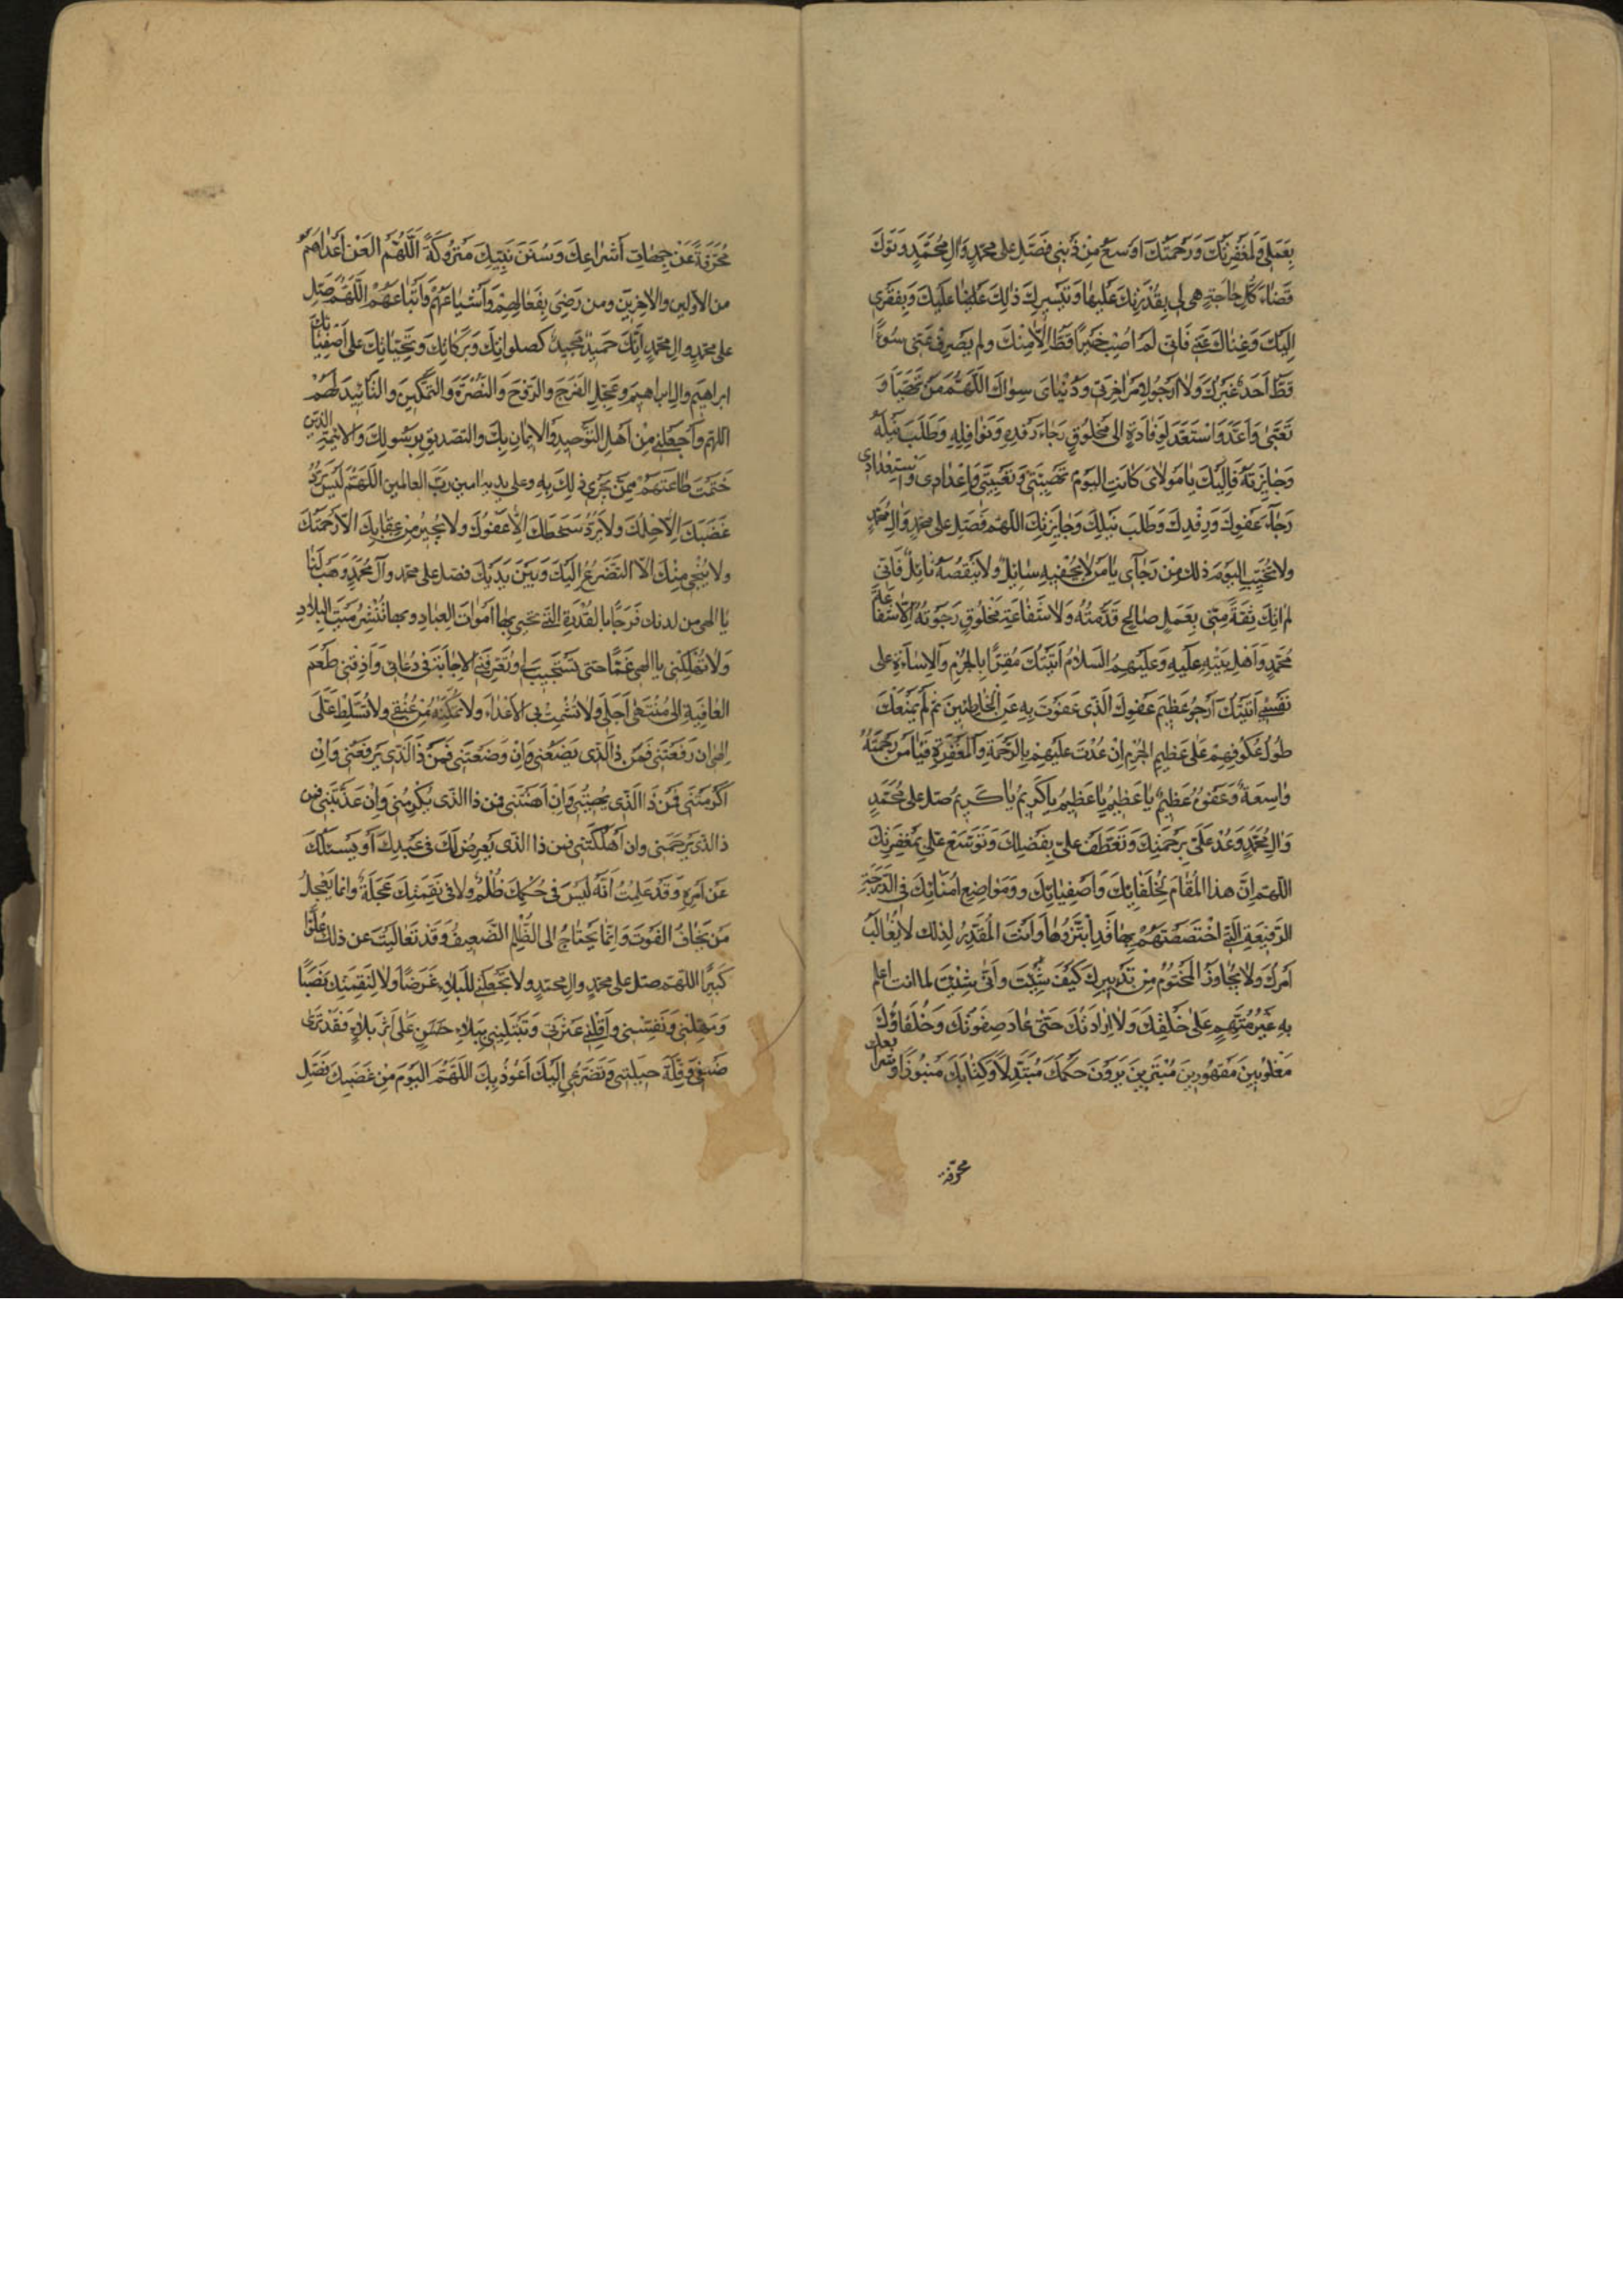 بِعَمَلي وَلَمَغْفِرَتُكَ وَرَحْمَتُكَ اَوْسَعُ مِنْ ذَنْبي فَصَلِّ عَلى مُحَمَّدٍ وَالِ مُحَمَّدٍ وَتَوَلَّ
قَضٰاءَ كُلِّ حٰاجَةٍ هي لي بِقُدْرَتِكَ عَلَيْهٰا وَتَيْسيرِكَ ذٰلِكَ عَلَيْكَ وَبِفَقْري
اِلَيْكَ وَغِنٰاكَ عَنّي فَاِنّي لَمْ اُصِبْ خَيْرًا قَطُّ اِلّٰا مِنْكَ ولم يَصْرِفْ عَنّي سُوءًا
قَطُّ اَحَدٌ غَيْرُكَ وَلٰا اَرْجُو لِاَمْرِ اٰخِرَتي وَدُنْيٰايَ سِوٰاكَ اَللّهُمَّ مَنْ تَهَيَّأَ وَ
تَعَبّىٰ وَاَعَدَّ وَاسْتَعَدَّ لِوِفٰادَةٍ الى مَخْلُوقٍ رَجٰاءَ رِفْدِهِ وَنَوٰافِلِهِ وَطَلَبَ نَيْلِهِ
وَجٰايِزَتِهِ فَاِلَيْكَ يٰا مَوْلاٰيَ كٰانَتِ اليَوْمَ تَهْيِئَتي وَتَعْبِيَتي وَاِعْدٰادي وَاسْتِعْدٰادي
رَجٰاءَ عَفْوِكَ وَرِفْدِكَ وَطَلَبَ نَيْلِكَ وَجٰايِزَتِكَ اللهمّ فَصَلِّ على محمّدٍ وَالِ مُحَمَّدٍ
ولا تُخَيِّبِ اليَوْمَ ذلك مِنْ رَجٰآئي يٰا مَنْ لٰا يُحْفيهِ سٰايِلٌ وَلٰا يَنْقُصُهُ نٰايِلٌ فَاِنّي
لم اٰتِكَ ثِقَةً مِنّي بِعَمَلٍ صٰالِحٍ قَدَّمْتُهُ وَلٰا شَفٰاعَةِ مَخْلُوقٍ رَجَوْتُهُ اِلّٰا شَفٰاعَةَ
مُحَمَّدٍ وَاَهْلِ بَيْتِهِ عَلَيْهِ وَعَلَيْهِمُ السَّلاٰمُ اَتَيْتُكَ مُقِرًّا بِالجُرْمِ وَالاِسٰاءَةِ على
نَفْسي اَتَيْتُكَ اَرْجُو عَظيمَ عَفْوِكَ الَّذي عَفَوْتَ بِهِ عَنِ الْخٰاطِئينَ ثم لَمْ يَمْنَعْكَ
طُولُ عُكُوفِهِمْ عَلٰى عَظيمِ الجُرْمِ اِنْ عُدْتَ عَلَيْهِمْ بِالرَّحْمَةِ وَالْمَغْفِرَةِ فَيٰا مَنْ رَحْمَتُهُ
وٰاسِعَةٌ وَعَفْوُهُ عَظيمٌ يٰا عَظيمُ يٰا عَظيمُ يا كَريمُ يٰا كَريمُ صَلِّ على مُحَمَّدٍ
وَالِ مُحَمَّدٍ وَعُدْ عَلَيَّ بِرَحْمَتِكَ وَتَعَطَّفْ عليّ بِفَضْلِكَ وَتَوَسَّعْ عَلَيَّ بِمَغْفِرَتِكَ
اللّهمّ اِنَّ هذا المُقٰامَ لِخُلَفٰائِكَ وَاَصْفِيٰائِكَ وَمَوٰاضِعِ اُمَنٰائِكَ في الدَّرَجَةِ
الرَّفيعَةِ الَّتي اخْتَصَصْتَهُمْ بِهٰا قَدِ ابْتَزُّوهٰا وَاَنْتَ المُقَدِّرُ لِذلك لٰا يُغٰالَبُ
اَمْرُكَ وَلٰا يُجٰاوَزُ المَحْتُومُ مِنْ تَدْبيرِكَ كَيْفَ شِئْتَ وَاَنّىٰ شِئْتَ لما انت اعلم
بِهِ غَيْرُ مُتَّهَمٍ عَلٰى خَلْقِكَ وَلٰا لِاِرٰادَتِكَ حَتّىٰ عٰادَ صِفْوَتُكَ وَخُلَفٰاؤُكَ
مَغْلُوبينَ مَقْهُورينَ مُبْتَزّينَ يَرَوْنَ حُكْمَكَ مُبَدَّلًا وَكِتٰابَكَ مَنْبُوذًا وَفَرٰايِعَكَ
محرّفة
مُحَرَّفَةً عَنْ جِهٰاتِ اَشْرٰاعِكَ وَسُنَنَ نَبِيِّكَ مَتْرُوكَةً اَللّهُمَّ الْعَنْ اَعْدٰاءَهُمْ
من الاَوَّلينَ والاٰخِرينَ ومن رَضِيَ بِفَعٰالِهِمْ وَاَشْيٰاعَهُمْ وَاَتْبٰاعَهُمْ اللّهُمَّ صَلِّ
على محمّدٍ والِ محمّدٍ اِنَّكَ حَميدٌ مَجيدٌ كصلواتِكَ وَبَرَكٰاتِكَ وَتَحِيّٰاتِكَ عَلى اَصْفِيٰائِكَ
ابراهيمَ والِ ابراهيمَ وَعَجِّلِ الفَرَجَ وَالرَّوْحَ وَالنُّصْرَةَ وَالتَّمْكينَ والتَّأْييدَ لَهُمْ
اللهمّ وَاجْعَلْني مِنْ اَهْلِ التَّوْحيدِ وَالايمٰانِ بِكَ والتصْديقِ بِرَسُولِكَ وَالائِمَّةِ الَّذينَ
حَتَمْتَ طٰاعَتَهُمْ مِمَّنْ يَجْري ذلِكَ بِهِ وعلى يديهِ امين رَبَّ العالمين اللّهُمَّ لَيْسَ يَرُدُّ
غَضَبَكَ اِلّٰا حِلْمُكَ ولا يَرُدُّ سَخَطَكَ اِلّٰا عَفْوُكَ ولا يُجيرُ مِنْ عِقٰابِكَ الاّ رَحْمَتُكَ
ولا يُنْجي مِنْكَ الاّ التَّضَرُّعُ اِلَيْكَ وَبَيْنَ يَدَيْكَ فصَلّ على محمّد وآلِ مُحَمَّدٍ وَهَبْ لَنٰا
يٰا الهي من لدنك فَرَجًا بِالقُدْرَةِ الَّتي تُحْيي بِهٰا اَمْوٰاتَ العِبٰادِ وبها تَنْشُرُ مَيْتَ البِلاٰدِ
وَلٰا تُهْلِكْني يا الهي غَمًّا حَتى تَسْتَجيبَ لي وتُعَرِّفَني الاِجٰابَةَ في دُعٰائي وَاَذِقْني طَعْمَ
العٰافِيَةِ اِلى مُنْتَهىٰ اَجَلي ولٰا تُشْمِتْ بي الاَعْدٰاءَ ولا تُمَكِّنْهُ مِنْ عُنُقي ولا تُسَلِّطْهُ عَلَيَّ
اِلهي ان رَفَعْتَني فَمَنْ ذَا الَّذي يَضَعُني وَاِنْ وَضَعْتَني فَمَنْ ذَا الَّذي يَرْفَعُني وَاِنْ
اَكْرَمْتَني فَمَنْ ذَا الَّذي يُهينُني وَاِنْ اَهَنْتَني فَمن ذا الَّذي يُكْرِمُني وَاِنْ عَذَّبْتَني فمن
ذا الذي يَرْحَمُني وان اَهْلَكْتَني فمن ذا الَّذي يَعْرِضُ لَكَ في عَبْدِكَ اَوْ يَسْئَلُكَ
عَنْ اَمْرِهِ وَقَدْ عَلِمْتُ اَنَّهُ لَيْسَ في حُكْمِكَ ظُلْمٌ ولا في نَقِمَتِكَ عَجَلَةٌ وانما يَعْجَلُ
مَنْ يَخٰافُ الفَوْتَ وَاِنَّمٰا يَحْتٰاجُ الى الظُّلْمِ الضَّعيفُ وَقَدْ تَعٰالَيْتَ عَن ذلك عُلُوًّا
كَبيرًا اللهمّ صلّ على محمّدٍ والِ محمّدٍ ولا تَجْعَلْني لِلْبَلاٰءِ غَرَضًا ولٰا لِنَقِمَتِكَ نَصَبًا
وَمَهِّلْني وَنَفِّسْني وَاَقِلْني عَثْرَتي وَلٰا تَبْتَلِيَنّي بِبَلاٰءٍ عَلٰى اَثَرِ بَلاٰءٍ فَقَدْ تَرىٰ
ضَعْفي وَقِلَّةَ حيلَتي وَتَضَرُّعي اِلَيْكَ اَعُوذُ بِكَ اللّهُمَّ اليَوْمَ مِنْ غَضَبِكَ فَصَلِّ